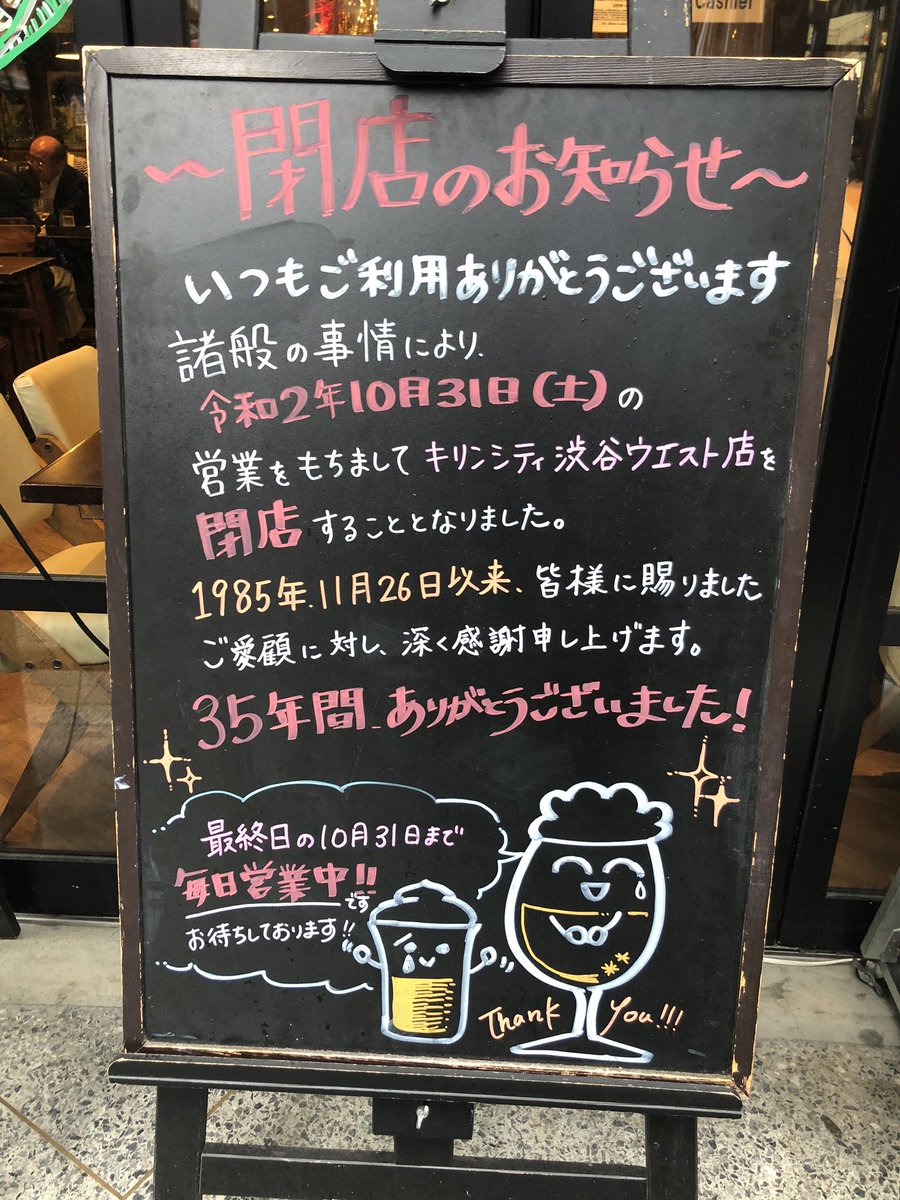 Cashier
〜閉店のお知らせ〜
いつもご利用ありがとうございます
諸般の事情により、
令和2年10月31日(土)の
営業をもちまして キリンシティ渋谷ウエスト店を
閉店することとなりました。
1985年.11月26日以来、皆様に賜りました
ご愛顧に対し、深く感謝申し上げます。
35年間 ありがとうございました!
最終日の10月31日まで
毎日営業中!!です
お待ちしております!!
Thank You!!!